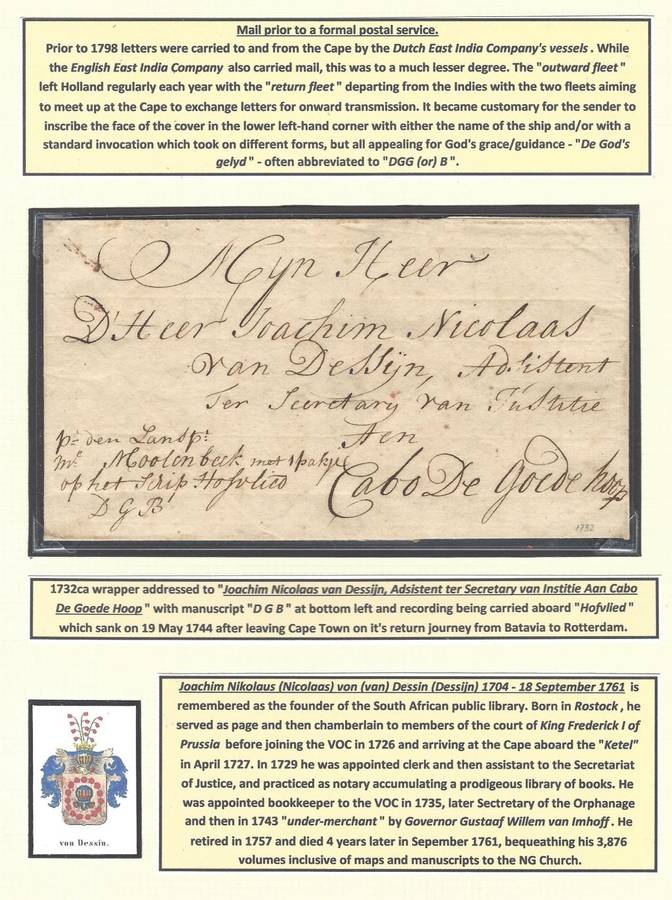 Mail prior to a formal postal service.
Prior to 1798 letters were carried to and from the Cape by the Dutch East India Company's vessels. While
the English East India Company also carried mail, this was to a much lesser degree. The "outward fleet"
left Holland regularly each year with the "return fleet" departing from the Indies with the two fleets aiming
to meet up at the Cape to exchange letters for onward transmission. It became customary for the sender to
inscribe the face of the cover in the lower left-hand corner with either the name of the ship and/or with a
standard invocation which took on different forms, but all appealing for God's grace/guidance - "De God's
gelyd" - often abbreviated to "DGG (or) B".
Myn Heer
D'Heer Joachim Nicolaas
van Dessijn, Adsistent
Ter Secretary van Justitie
Aen
Cabo De Goede hoop
pr den Landspt
mr Moolenbeek met 1 pakje
op het Scip Hofvlied
D G B
1732
1732ca wrapper addressed to "Joachim Nicolaas van Dessijn, Adsistent ter Secretary van Institie Aan Cabo
De Goede Hoop" with manuscript "D G B" at bottom left and recording being carried aboard "Hofvlied"
which sank on 19 May 1744 after leaving Cape Town on it's return journey from Batavia to Rotterdam.
von Dessin.
Joachim Nikolaus (Nicolaas) von (van) Dessin (Dessijn) 1704 - 18 September 1761 is
remembered as the founder of the South African public library. Born in Rostock, he
served as page and then chamberlain to members of the court of King Frederick I of
Prussia before joining the VOC in 1726 and arriving at the Cape aboard the "Ketel"
in April 1727. In 1729 he was appointed clerk and then assistant to the Secretariat
of Justice, and practiced as notary accumulating a prodigeous library of books. He
was appointed bookkeeper to the VOC in 1735, later Sectretary of the Orphanage
and then in 1743 "under-merchant" by Governor Gustaaf Willem van Imhoff. He
retired in 1757 and died 4 years later in Sepember 1761, bequeathing his 3,876
volumes inclusive of maps and manuscripts to the NG Church.